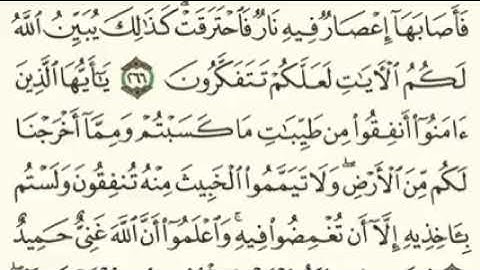 فَأَصَابَهَآ إِعْصَارٌ فِيهِ نَارٌ فَٱحْتَرَقَتْ ۗ كَذَٰلِكَ يُبَيِّنُ ٱللَّهُ
لَكُمُ ٱلْأَيَٰتِ لَعَلَّكُمْ تَتَفَكَّرُونَ ٢٦٦ يَٰٓأَيُّهَا ٱلَّذِينَ
ءَامَنُوٓا۟ أَنفِقُوا۟ مِن طَيِّبَٰتِ مَا كَسَبْتُمْ وَمِمَّآ أَخْرَجْنَا
لَكُم مِّنَ ٱلْأَرْضِ ۖ وَلَا تَيَمَّمُوا۟ ٱلْخَبِيثَ مِنْهُ تُنفِقُونَ وَلَسْتُم
بِـَٔاخِذِيهِ إِلَّآ أَن تُغْمِضُوا۟ فِيهِ ۚ وَٱعْلَمُوٓا۟ أَنَّ ٱللَّهَ غَنِىٌّ حَمِيدٌ